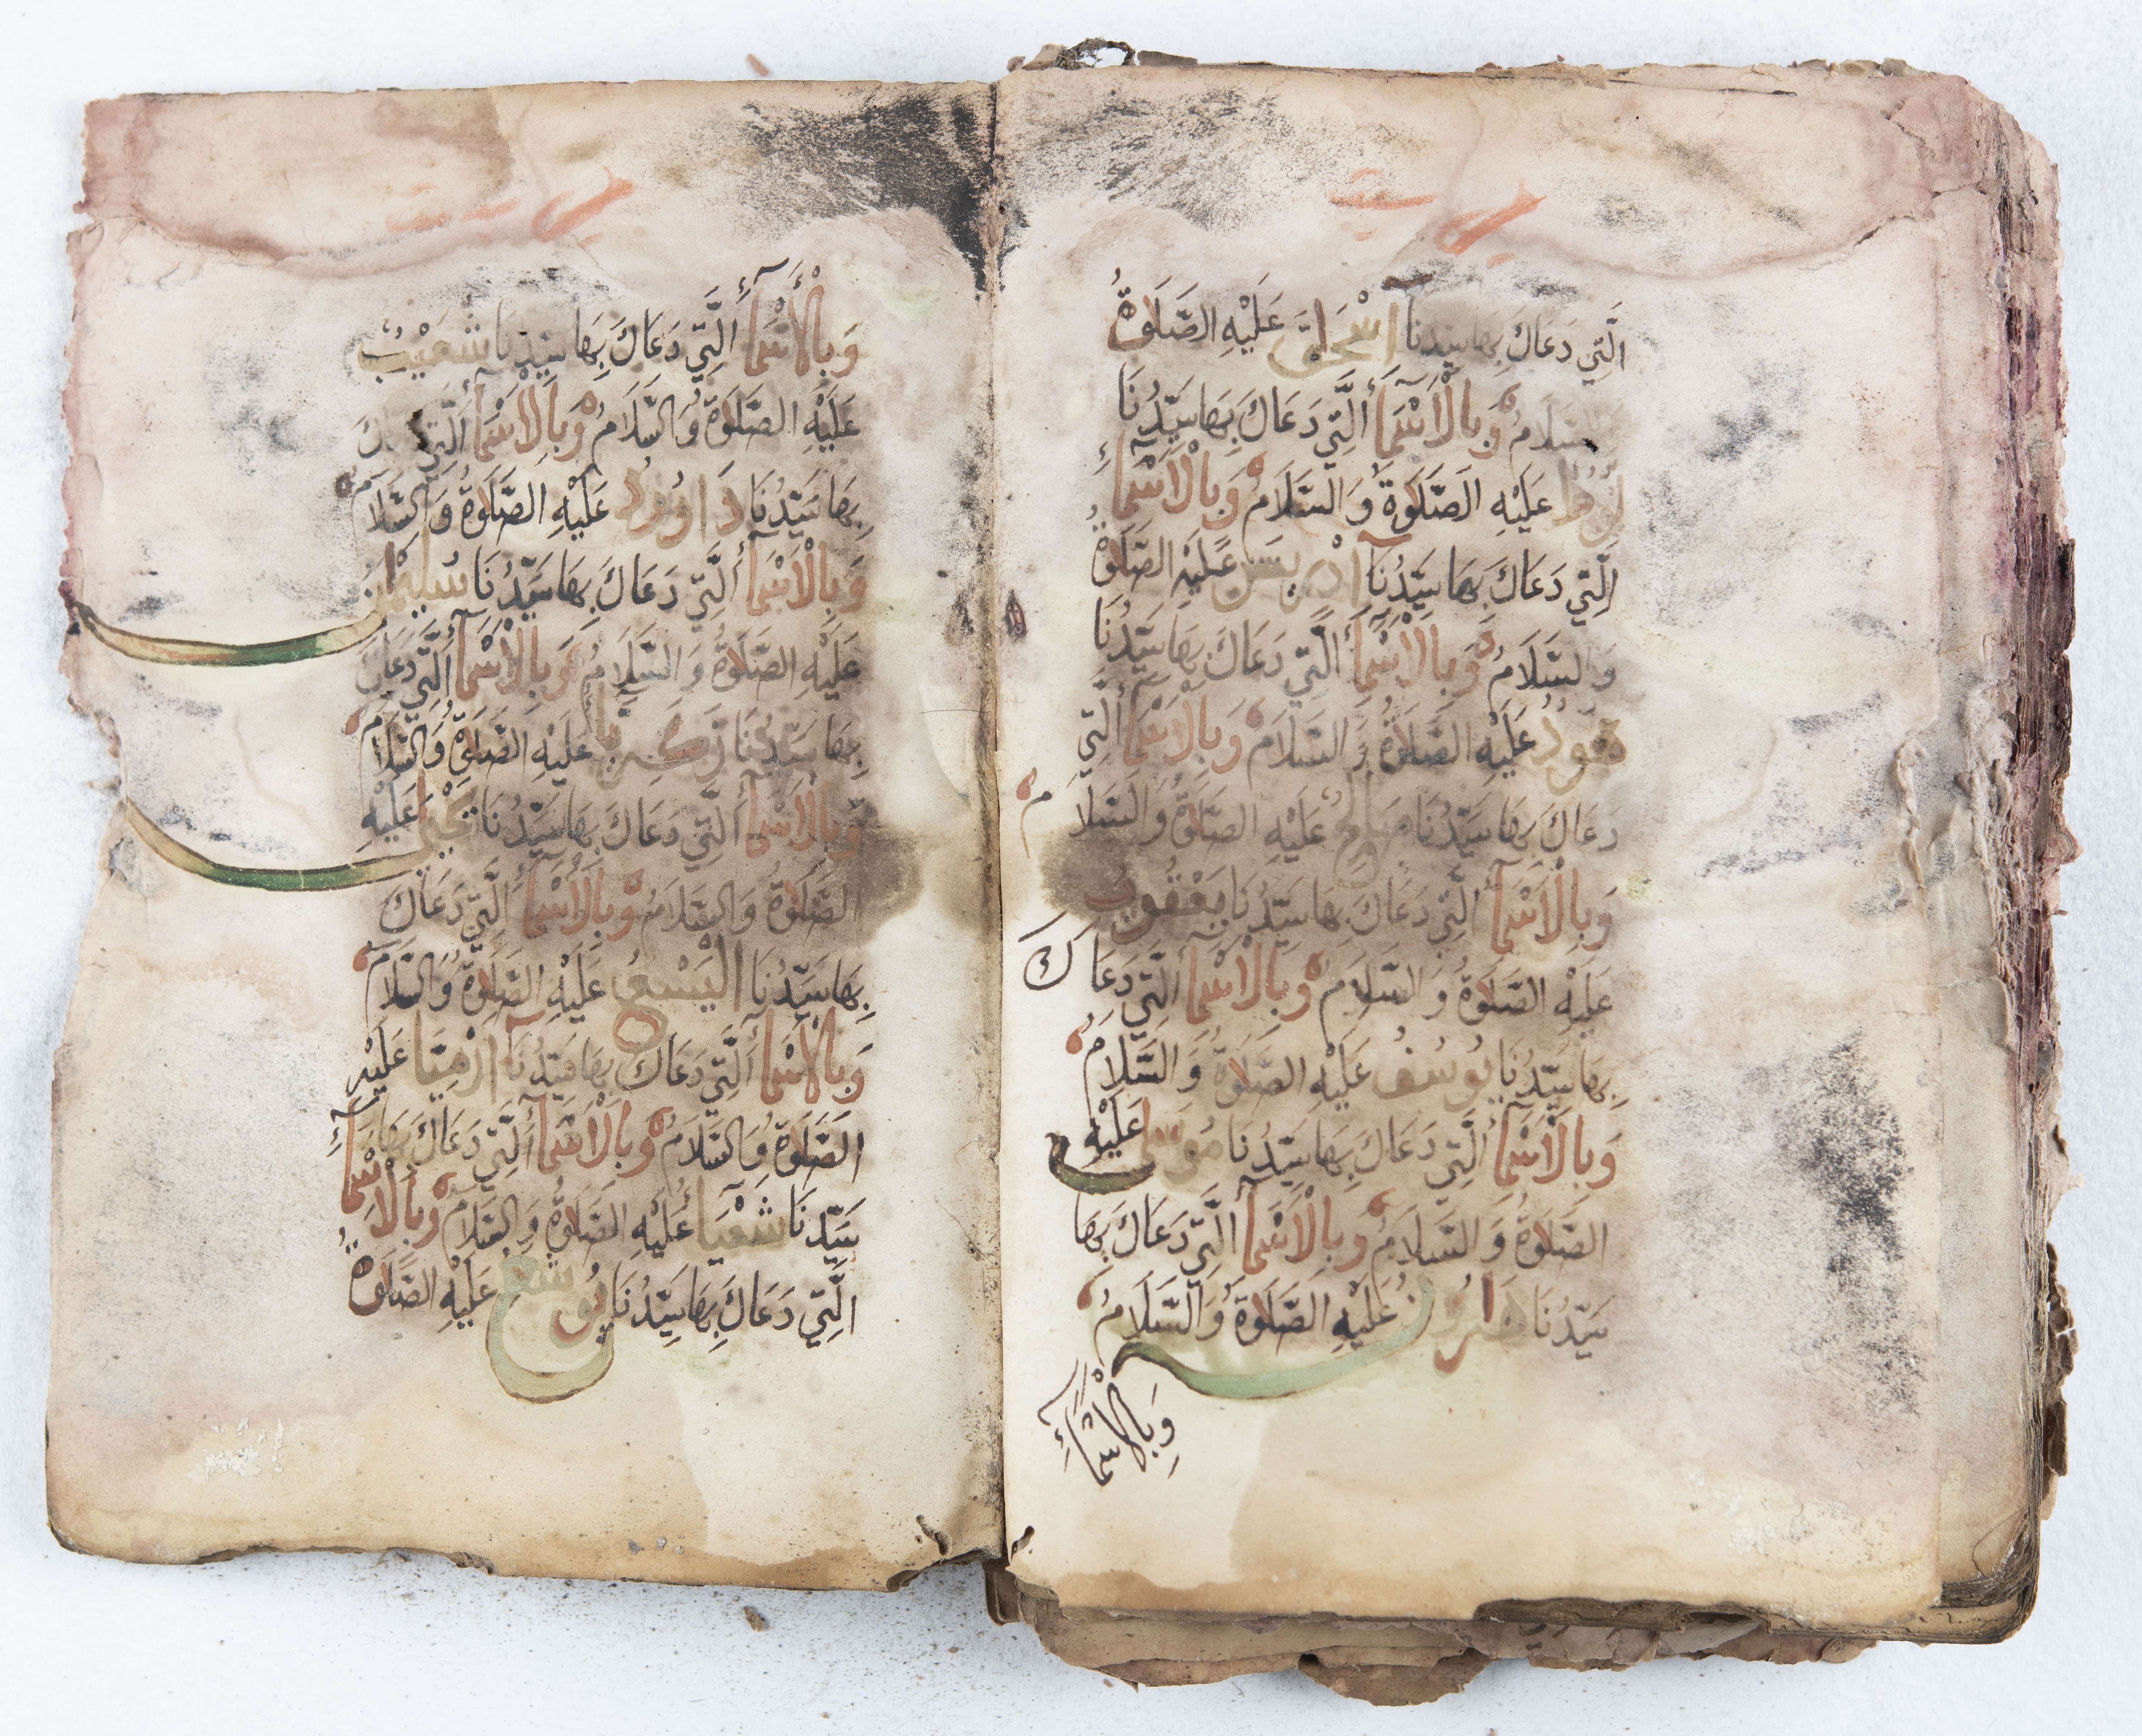 الَّتِي دَعَاكَ بِهَا سَيِّدُنَا اِسْحَاقَ عَلَيْهِ الصَّلَاوةُ
وَالسَّلَامُ وَبِالْاَسْمَآءِ الَّتِي دَعَاكَ بِهَا سَيِّدُنَا
لُوطُ عَلَيْهِ الصَّلَاوةُ وَالسَّلَامُ وَبِالْاَسْمَآءِ
الَّتِي دَعَاكَ بِهَا سَيِّدُنَآ اِدْرِيسَ عَلَيْهِ الصَّلَاوةُ
وَالسَّلَامُ وَبِالْاَسْمَآءِ الَّتِي دَعَاكَ بِهَا سَيِّدُنَا
هُودُ عَلَيْهِ الصَّلَاوةُ وَالسَّلَامُ وَبِالْاَسْمَآءِ الَّتِي
دَعَاكَ بِهَا سَيِّدُنَا صَالِحُ عَلَيْهِ الصَّلَاوةُ وَالسَّلَامُ
وَبِالْاَسْمَآءِ الَّتِي دَعَاكَ بِهَا سَيِّدُنَا يَعْقُوبُ
عَلَيْهِ الصَّلَاوةُ وَالسَّلَامُ وَبِالْاَسْمَآءِ الَّتِي دَعَاكَ
بِهَا سَيِّدُنَا يُوسُفُ عَلَيْهِ الصَّلَاوةُ وَالسَّلَامُ
وَبِالْاَسْمَآءِ الَّتِي دَعَاكَ بِهَا سَيِّدُنَا مُوسَى عَلَيْهِ
الصَّلَاوةُ وَالسَّلَامُ وَبِالْاَسْمَآءِ الَّتِي دَعَاكَ بِهَا
سَيِّدُنَا هَارُونُ عَلَيْهِ الصَّلَاوةُ وَالسَّلَامُ
وَبِالْاَسْمَآءِ
وَبِالْاَسْمَآءِ الَّتِي دَعَاكَ بِهَا سَيِّدُنَا شُعَيْبُ
عَلَيْهِ الصَّلَاوةُ وَالسَّلَامُ وَبِالْاَسْمَآءِ الَّتِي دَعَاكَ
بِهَا سَيِّدُنَا دَاوُودُ عَلَيْهِ الصَّلَاوةُ وَالسَّلَامُ
وَبِالْاَسْمَآءِ الَّتِي دَعَاكَ بِهَا سَيِّدُنَا سُلَيْمَنُ
عَلَيْهِ الصَّلَاوةُ وَالسَّلَامُ وَبِالْاَسْمَآءِ الَّتِي دَعَاكَ
بِهَا سَيِّدُنَا زَكَرِيَّآ عَلَيْهِ الصَّلَاوةُ وَالسَّلَامُ
وَبِالْاَسْمَآءِ الَّتِي دَعَاكَ بِهَا سَيِّدُنَا يَحْيَى عَلَيْهِ
الصَّلَاوةُ وَالسَّلَامُ وَبِالْاَسْمَآءِ الَّتِي دَعَاكَ
بِهَا سَيِّدُنَا الْيَسَعُ عَلَيْهِ الصَّلَاوةُ وَالسَّلَامُ
وَبِالْاَسْمَآءِ الَّتِي دَعَاكَ بِهَا سَيِّدُنَآ اَرْمِيَّا عَلَيْهِ
الصَّلَاوةُ وَالسَّلَامُ وَبِالْاَسْمَآءِ الَّتِي دَعَاكَ بِهَا
سَيِّدُنَا شَعْيَا عَلَيْهِ الصَّلَاوةُ وَالسَّلَامُ وَبِالْاَسْمَآءِ
الَّتِي دَعَاكَ بِهَا سَيِّدُنَا يُوشَعُ عَلَيْهِ الصَّلَاوةُ